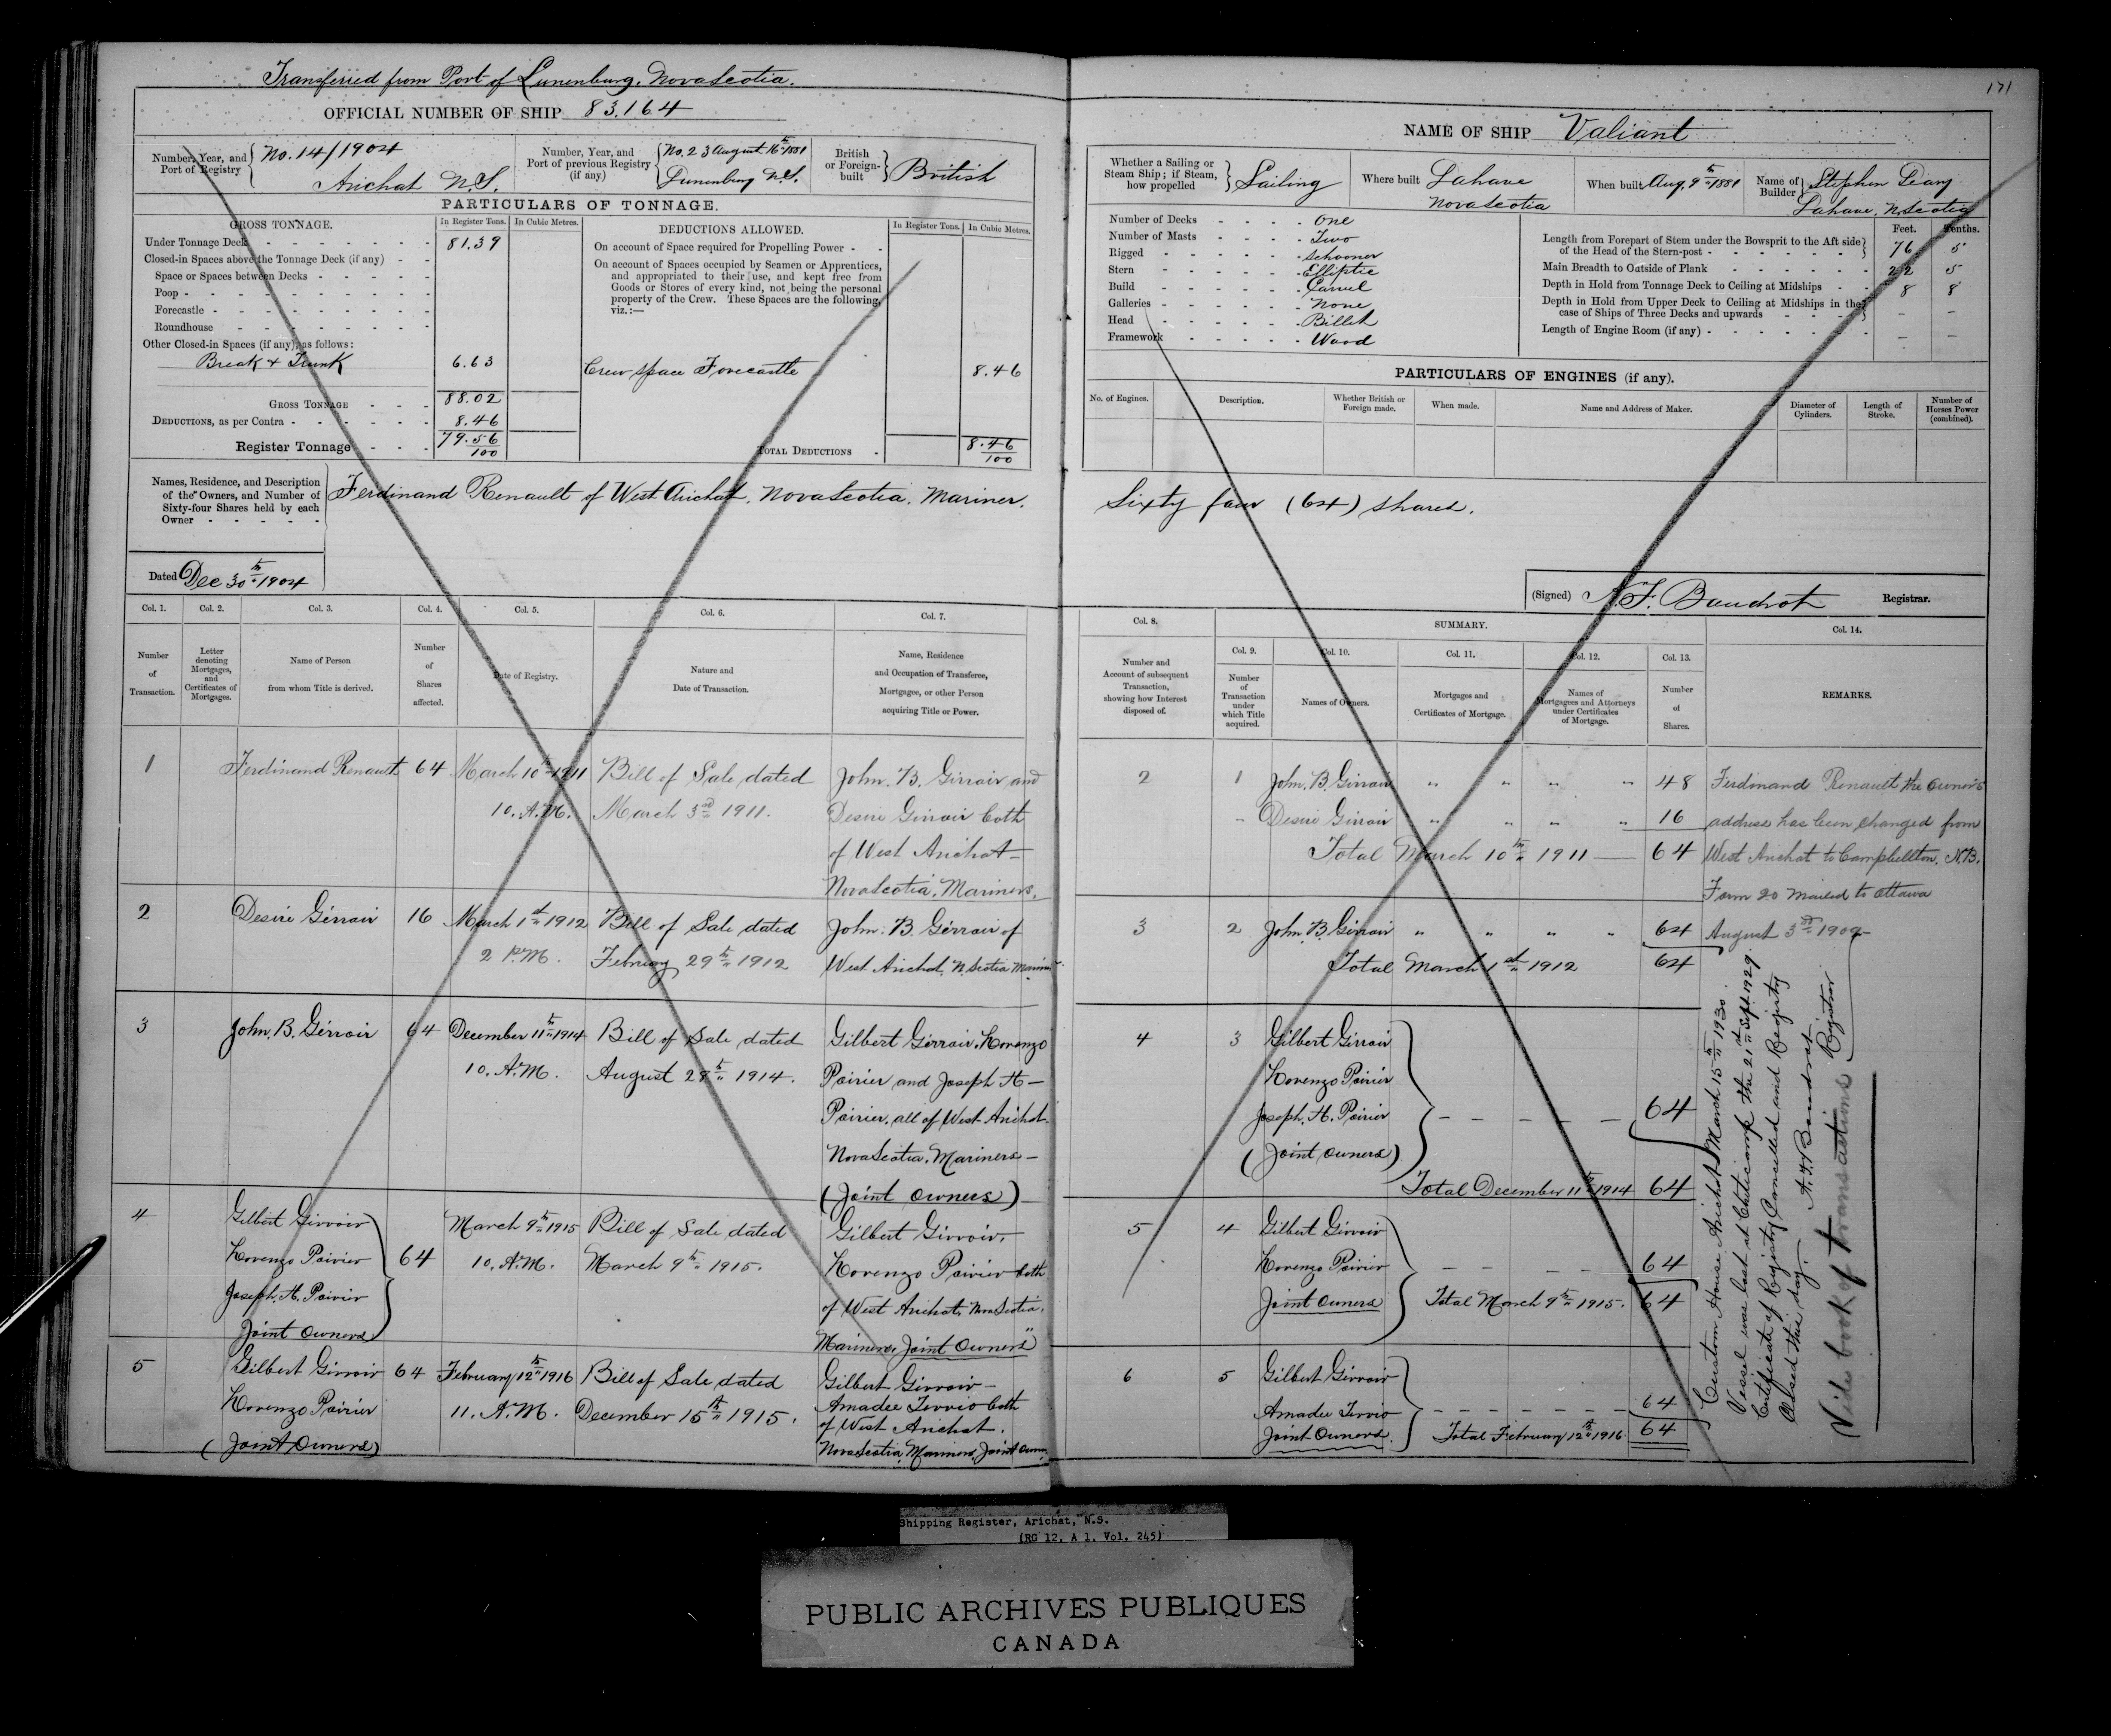 Transferred from Port of Lunenburg, Nova Scotia.
OFFICIAL NUMBER OF SHIP 83,164
Number, Year, and Port of Registry No. 14/1904 Arichat N.S.
Number, Year, and Port of previous Registry (if any) No. 23 August 16th 1881 Lunenburg N.S.
British or Foreign-built British
PARTICULARS OF TONNAGE.
GROSS TONNAGE. In Register Tons. In Cubic Metres.
Under Tonnage Deck 81.39
Closed-in Spaces above the Tonnage Deck (if any)
Space or Spaces between Decks
Poop
Forecastle
Roundhouse
Other Closed-in Spaces (if any), as follows:
Break & Trunk 6.63
GROSS TONNAGE 88.02
DEDUCTIONS, as per Contra 8.46
Register Tonnage 79.56/100
DEDUCTIONS ALLOWED. In Register Tons. In Cubic Metres.
On account of Space required for Propelling Power
On account of Spaces occupied by Seamen or Apprentices,
and appropriated to their use, and kept free from
Goods or Stores of every kind, not being the personal
property of the Crew. These Spaces are the following,
viz.:—
Crew space Forecastle 8.46
TOTAL DEDUCTIONS 8.46/100
Names, Residence, and Description
of the Owners, and Number of
Sixty-four Shares held by each
Owner
Ferdinand Renault of West Arichat, Nova Scotia, Mariner.
Dated Dec 30th 1904
171
NAME OF SHIP Valiant
Whether a Sailing or Steam Ship; if Steam, how propelled Sailing
Where built Lahave Nova Scotia
When built Aug. 9th 1881
Name of Builder Stephen Lahave, N. Scotia
Number of Decks One
Number of Masts Two
Rigged Schooner
Stern Elliptic
Build Carvel
Galleries None
Head Billet
Framework Wood
Feet. Tenths.
Length from Forepart of Stem under the Bowsprit to the Aft side of the Head of the Stern-post 76 5
Main Breadth to Outside of Plank 22 5
Depth in Hold from Tonnage Deck to Ceiling at Midships 8 8
Depth in Hold from Upper Deck to Ceiling at Midships in the case of Ships of Three Decks and upwards – –
Length of Engine Room (if any) – –
PARTICULARS OF ENGINES (if any).
No. of Engines. Description. Whether British or Foreign made. When made. Name and Address of Maker. Diameter of Cylinders. Length of Stroke. Number of Horses Power (combined).
Sixty four (64) shares.
(Signed) A. F. Baudrot Registrar.
Col. 1. Col. 2. Col. 3. Col. 4. Col. 5. Col. 6. Col. 7.
Number of Transaction.
Letter denoting Mortgages, and Certificates of Mortgages.
Name of Person from whom Title is derived.
Number of Shares affected.
Date of Registry.
Nature and Date of Transaction.
Name, Residence and Occupation of Transferee, Mortgagee, or other Person acquiring Title or Power.
1 Ferdinand Renault 64 March 10th 1911 Bill of Sale dated John. B. Girroir and
10. A.M. March 3rd 1911. Desire Girroir both
of West Arichat
Nova Scotia, Mariners.
2 Desire Girroir 16 March 1st 1912 Bill of Sale dated John. B. Girroir of
2 P.M. February 29th 1912 West Arichat, N. Scotia Mariner
3 John. B. Girroir 64 December 11th 1914 Bill of Sale dated Gilbert Girroir, Lorenzo
10. A.M. August 28th 1914. Poirier and Joseph H
Poirier, all of West Arichat
Nova Scotia, Mariners
(Joint Owners)
4 Gilbert Girroir March 9th 1915 Bill of Sale dated Gilbert Girroir,
Lorenzo Poirier 64 10. A.M. March 9th 1915. Lorenzo Poirier both
Joseph. H. Poirier of West Arichat, Nova Scotia,
Joint Owners Mariners, Joint Owners
5 Gilbert Girroir 64 February 12th 1916 Bill of Sale dated Gilbert Girroir
Lorenzo Poirier 11. A.M. December 15th 1915. Amadee both
(Joint Owners) of West Arichat.
Nova Scotia, Mariners, Joint
Col. 8. SUMMARY. Col. 14.
Col. 9. Col. 10. Col. 11. Col. 12. Col. 13.
Number and Account of subsequent Transaction, showing how Interest disposed of.
Number of Transaction under which Title acquired.
Names of Owners.
Mortgages and Certificates of Mortgage.
Names of Mortgagees and Attorneys under Certificates of Mortgage.
Number of Shares.
REMARKS.
2 1 John. B. Girroir " " " " 48
Desire Girroir " " " " 16
Total March 10th 1911 — 64
3 2 John. B. Girroir " " " " 64
Total March 1st 1912 64
4 3 Gilbert Girroir
Lorenzo Poirier
Joseph. H. Poirier – – – – – 64
(Joint Owners)
Total December 11th 1914 64
5 4 Gilbert Girroir
Lorenzo Poirier – – – – 64
Joint Owners Total March 9th 1915. 64
6 5 Gilbert Girroir
Amadee – – – – – – 64
Joint Owners. Total February 12th 1916 64
Ferdinand Renault the owner's
address has been changed from
West Arichat to Campbellton, N.B.
Form 20 mailed to Ottawa
August 3rd
Custom House Arichat March 15th 1930.
Vessel was lost at Cheticamp the 21st Sept. 1929
Certificate of Registry Cancelled and Registry
Closed this day. A. F. Baudrot Registrar
Vide book of transactions
Shipping Register, Arichat, N.S.
(RG 12, A 1, Vol. 245)
PUBLIC ARCHIVES PUBLIQUES
CANADA